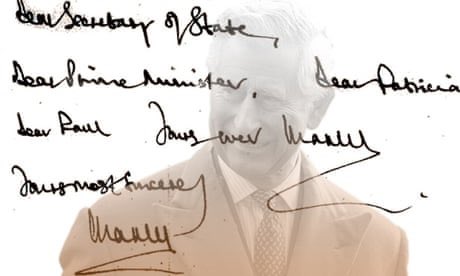 Dear Secretary of State,
Dear Prime Minister, Dear Patricia
Dear Paul Yours ever
Yours most sincerely